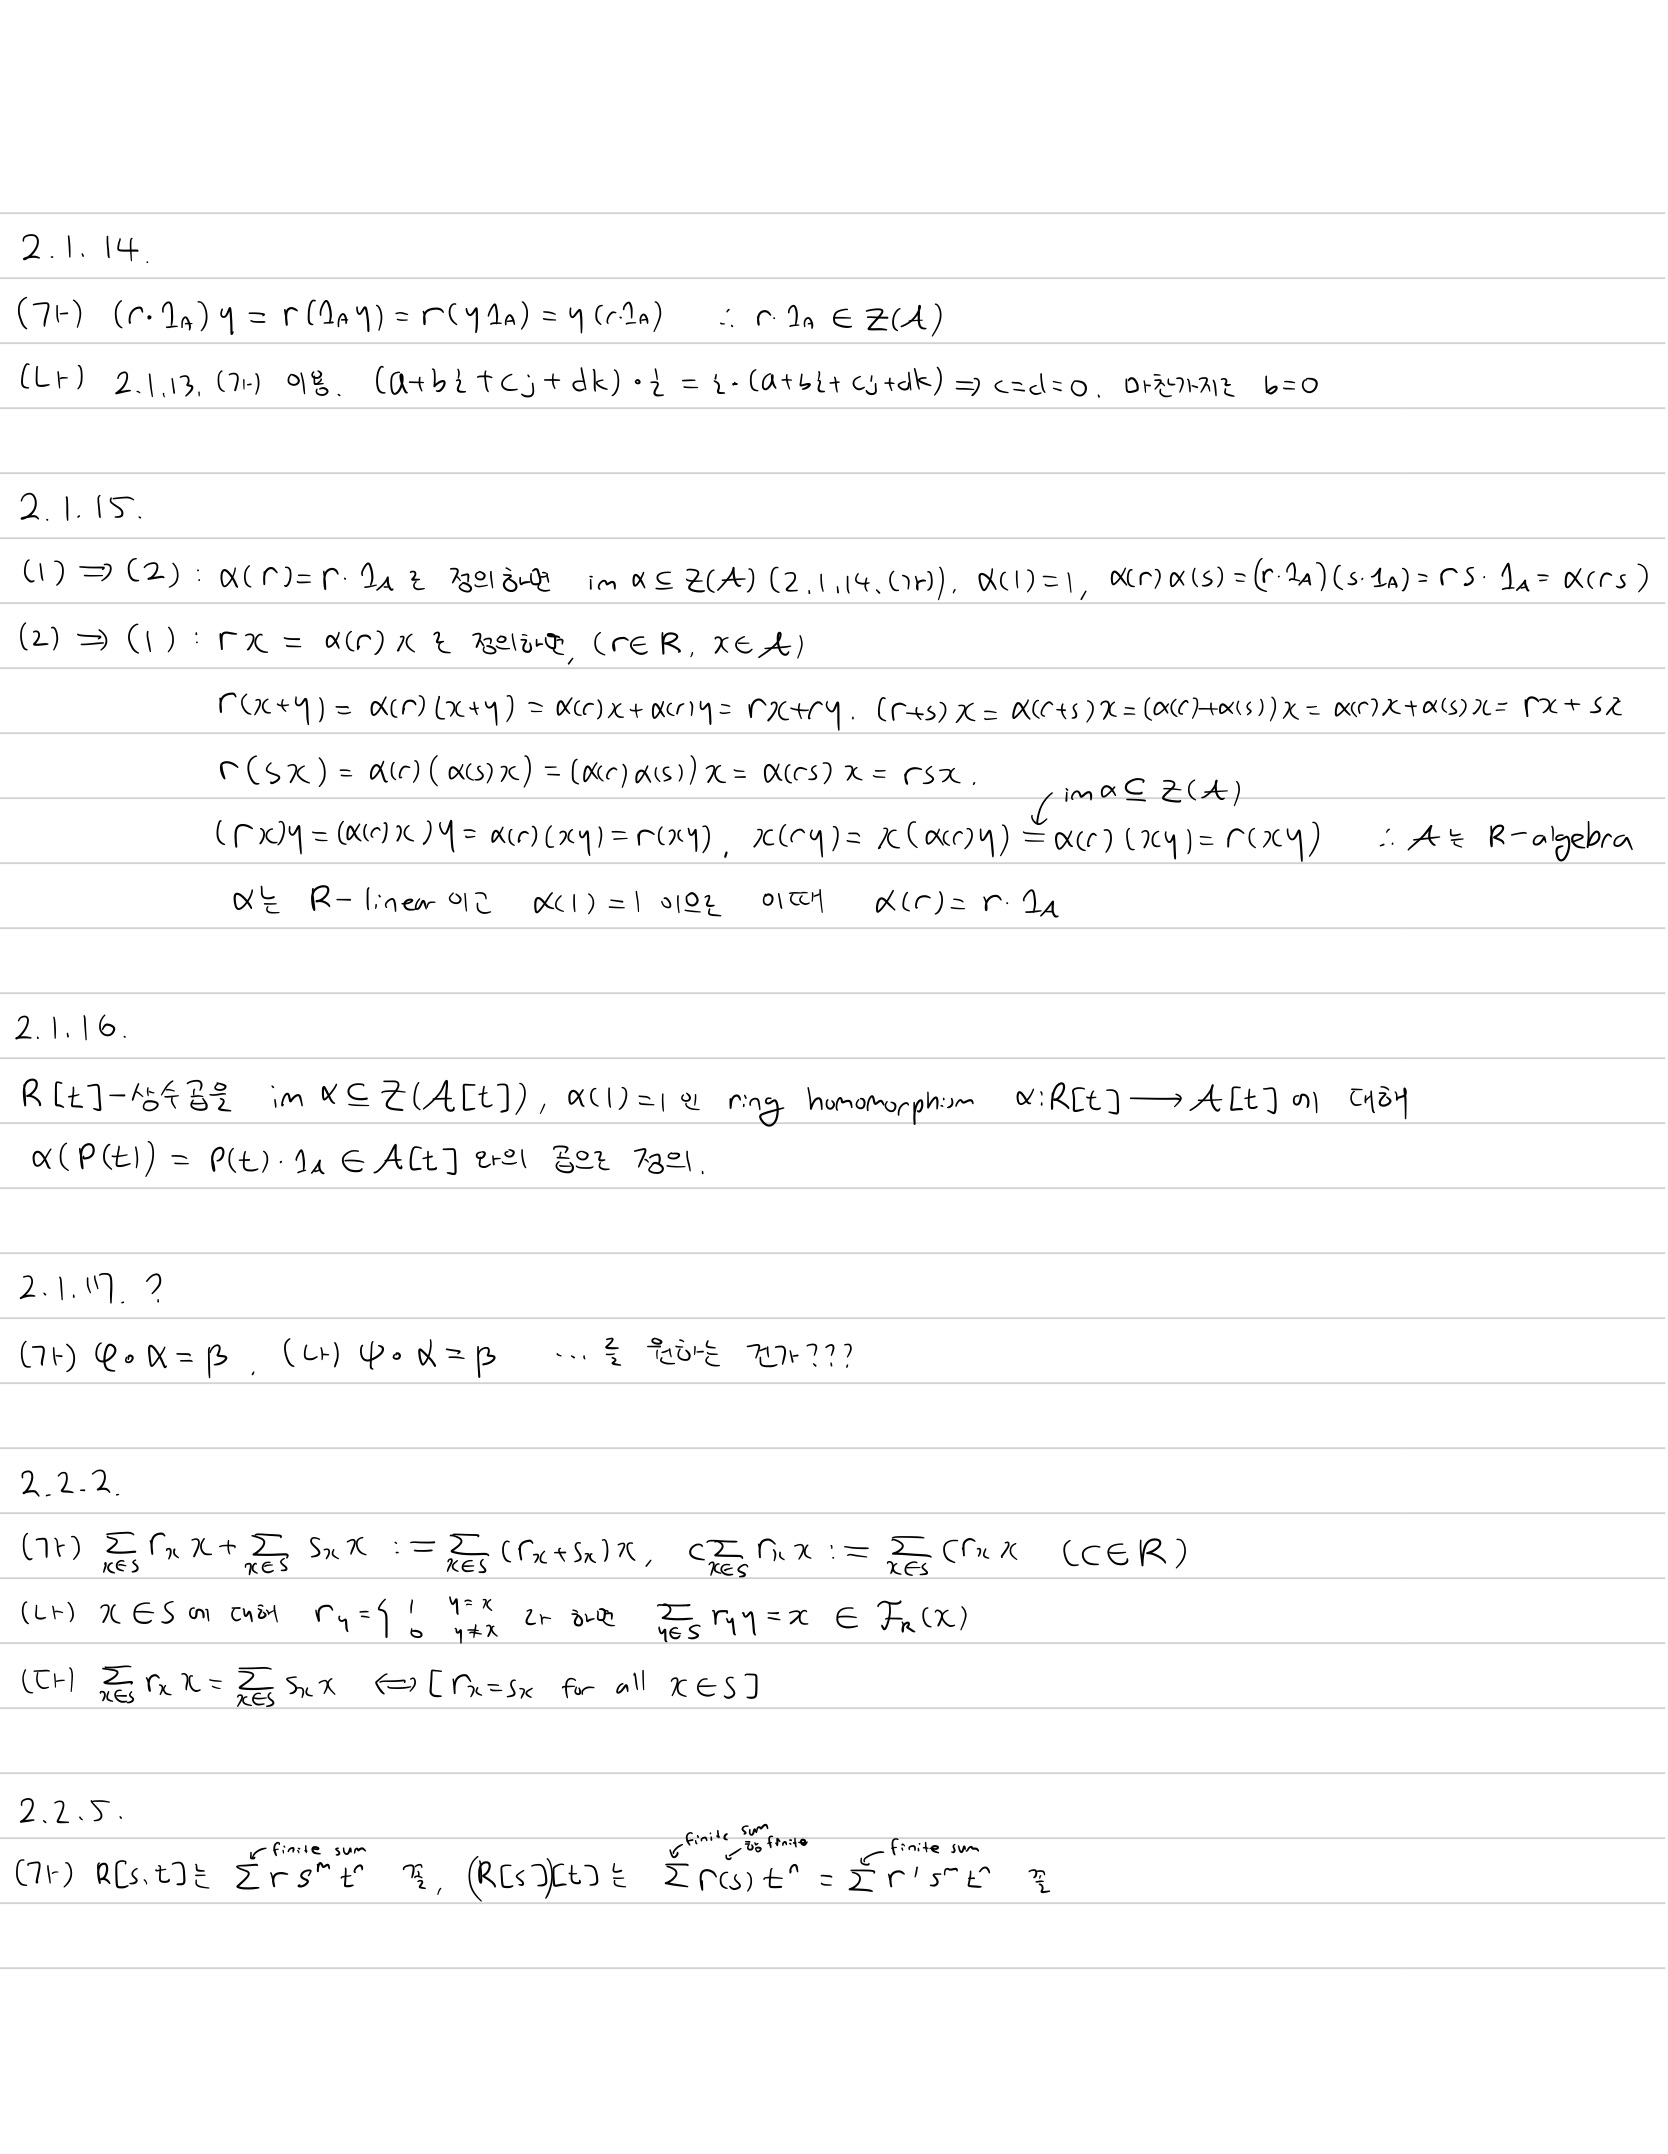 2.1.14.
(가) (r·1_A)y = r(1_A y) = r(y1_A) = y(r·1_A) ∴ r·1_A ∈ Z(A)
(나) 2.1.13.(가) 이용. (a+bi+cj+dk)·i = i·(a+bi+cj+dk) ⇒ c=d=0. 마찬가지로 b=0
2.1.15.
(1) ⇒ (2) : α(r)=r·1_A로 정의하면 im α ⊆ Z(A) (2.1.14.(가)). α(1)=1, α(r)α(s)=(r·1_A)(s·1_A)=rs·1_A=α(rs)
(2) ⇒ (1) : rx = α(r)x로 정의하면, (r∈R, x∈A)
r(x+y) = α(r)(x+y) = α(r)x+α(r)y = rx+ry. (r+s)x = α(r+s)x = (α(r)+α(s))x = α(r)x+α(s)x = rx+sx
r(sx) = α(r)(α(s)x) = (α(r)α(s))x = α(rs)x = rsx.
im α ⊆ Z(A)
(rx)y = (α(r)x)y = α(r)(xy) = r(xy), x(ry) = x(α(r)y) = α(r)(xy) = r(xy) ∴ A는 R-algebra
α는 R-linear이고 α(1)=1이으로 이때 α(r)=r·1_A
2.1.16.
R[t]-상수곱을 im α ⊆ Z(A[t]), α(1)=1인 ring homomorphism α:R[t]⟶A[t]에 대해
α(P(t)) = P(t)·1_A ∈ A[t]와의 곱으로 정의.
2.1.17. ?
(가) φ∘α=β. (나) ψ∘α=β …를 원하는 건가???
2.2.2.
(가) Σ_{x∈S} r_x x + Σ_{x∈S} s_x x := Σ_{x∈S} (r_x+s_x)x, cΣ_{x∈S} r_x x := Σ_{x∈S} cr_x x (c∈R)
(나) x∈S에 대해 r_y = { 1 y=x 0 y≠x 라 하면 Σ_{y∈S} r_y y = x ∈ F_R(x)
(다) Σ_{x∈S} r_x x = Σ_{x∈S} s_x x ⟺ [r_x=s_x for all x∈S]
2.2.5.
finite sum finite sum 항등 finite finite sum
(가) R[s,t]는 Σ r s^m t^n 꼴, (R[s])[t]는 Σ r(s) t^n = Σ r' s^m t^n 꼴